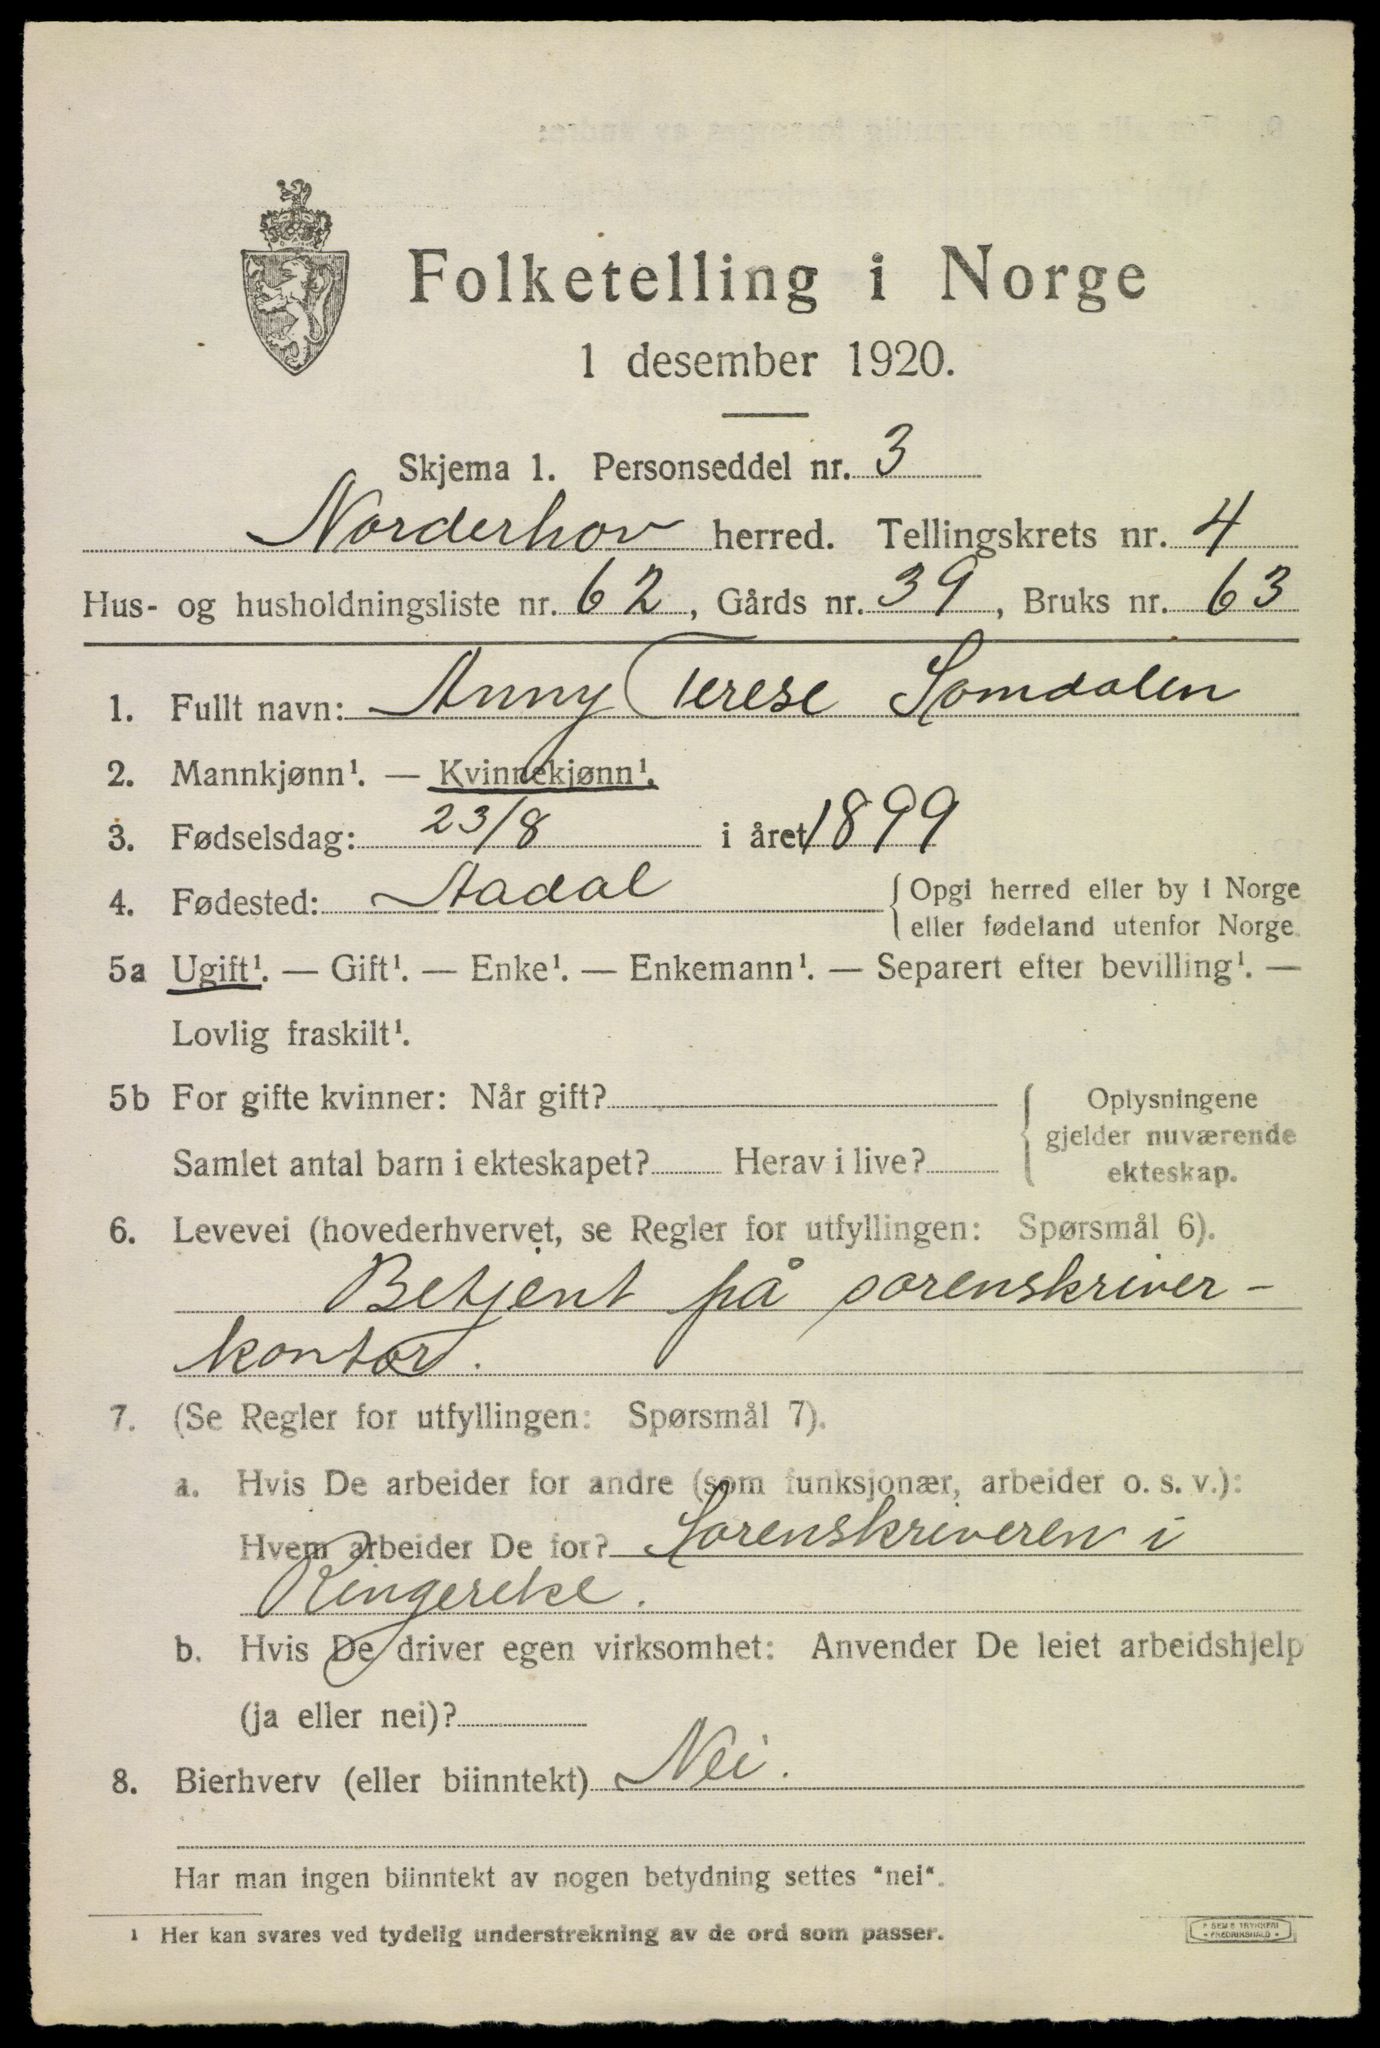 Folketelling i Norge
1 desember 1920.
Skjema 1. Personseddel nr. 3
Norderhov herred. Tellingskrets nr. 4
Hus- og husholdningsliste nr. 62, Gårds nr. 39, Bruks nr. 63
1. Fullt navn: Anny Terese Somdalen
2. Mannkjønn¹. — Kvinnekjønn¹.
3. Fødselsdag: 23/8 i året 1899
4. Fødested: Aadal { Opgi herred eller by i Norge
eller fødeland utenfor Norge.
5a Ugift¹. — Gift¹. — Enke¹. — Enkemann¹. — Separert efter bevilling¹. —
Lovlig fraskilt¹.
5b For gifte kvinner: Når gift? { Oplysningene
gjelder nuværende
Samlet antal barn i ekteskapet? Herav i live?
ekteskap.
6. Levevei (hovederhvervet, se Regler for utfyllingen: Spørsmål 6).
Betjent på sorenskriver-
kontor.
7. (Se Regler for utfyllingen: Spørsmål 7).
a. Hvis De arbeider for andre (som funksjonær, arbeider o. s. v.):
Hvem arbeider De for? Sorenskriveren i
Ringerike.
b. Hvis De driver egen virksomhet: Anvender De leiet arbeidshjelp
(ja eller nei)?
8. Bierhverv (eller biinntekt) Nei.
Har man ingen biinntekt av nogen betydning settes "nei".
¹ Her kan svares ved tydelig understrekning av de ord som passer.
SEM & TRYKKERI
FREDRIKSHALD